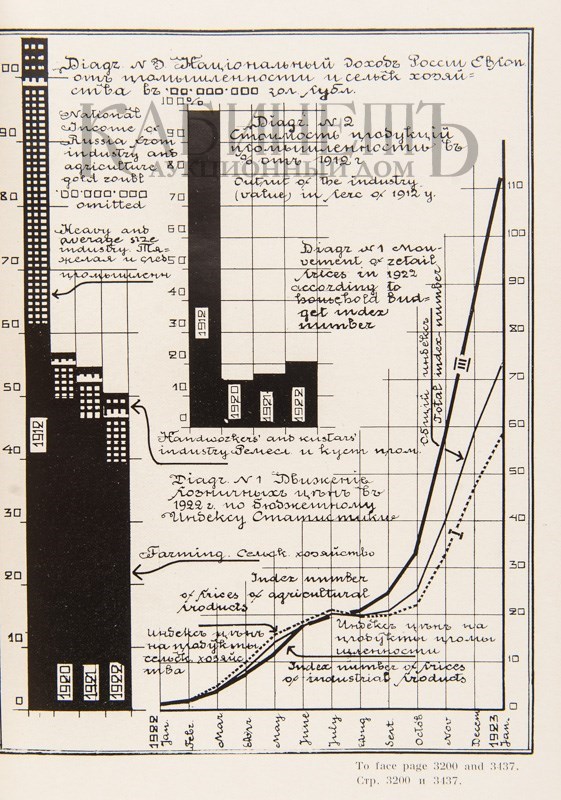 Diagr N 3 Национальный доходъ России Європ
отъ промышленности и сельск хозяй=
ства въ 00·000·000 зол рубл.
National
Income of
Russia from
industry and
agriculture
gold roubl
00·000·000
omitted
Heavy and
average size
industry. Тя=
желая и сред
промышлен
1912
1920
1921
1922
100%
Diagr N 2
Стоимость продукцій
промышленность въ
% отъ 1912 г.
Output of the industry
(value) in perc of 1912 y.
70
60
50
40
30
20
10
0
1912
1920
1921
1922
Diagr N 1 Mou-
vement of retail
prices in 1922
according to
household bud=
get index
number
Общий индексъ
Total index number
III
I
Handworkers' and kustars'
industry Ремесл и куст пром.
Diagr N 1 Движеніе
розничныхъ цѣнъ въ
1922 г. по бюджетному
Индексу Статистики
Farming. Сельск. хозяйство
Index number
of prices of agricultural
products
Индексъ цѣнъ
на продукты
сельск хозяйс
тва
Индексъ цѣнъ на
продукты промы
шленности
Index number of prices
of industrial products
90
80
70
60
50
40
30
20
10
0
110
100
90
80
70
60
50
40
30
20
10
0
1922
Jan.
Febr
Mar
Apr
May
June
July
Aug
Sept.
Octob
Nov
Decem
1923
Jan.
КАБИНЕТЪ
АУКЦИОННЫЙ ДОМ
To face page 3200 and 3437.
Стр. 3200 и 3437.